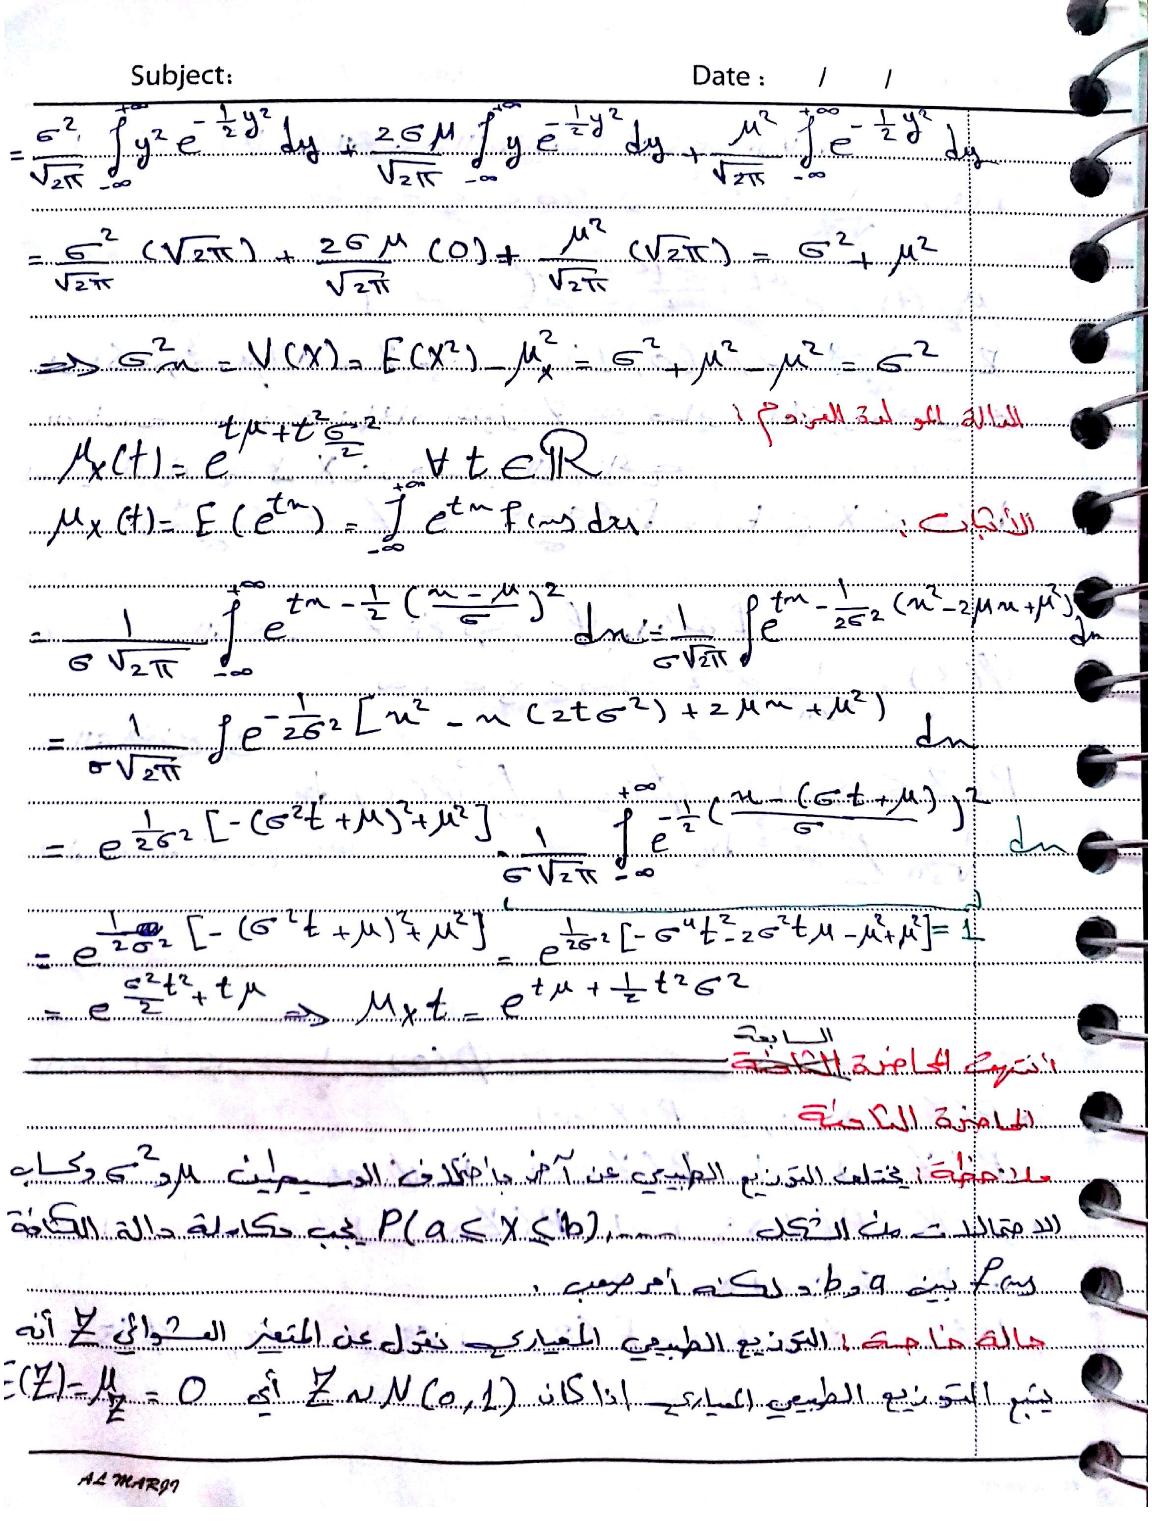 Subject: Date : / /
= σ²/√2π ∫_{-∞}^{+∞} y² e^{-1/2 y²} dy + 2σμ/√2π ∫_{-∞}^{+∞} y e^{-1/2 y²} dy + μ²/√2π ∫_{-∞}^{+∞} e^{-1/2 y²} dy
= σ²/√2π (√2π) + 2σμ/√2π (0) + μ²/√2π (√2π) = σ² + μ²
⇒ σ²x = V(X) = E(X²) - μ²x = σ² + μ² - μ² = σ²
الدالة المولدة للعزوم :
μx(t) = e^{tμ + t² σ²/2} ∀ t ∈ ℝ
الأثبات : μx(t) = E(e^{tx}) = ∫_{-∞}^{+∞} e^{tx} f(x) dx
= 1/σ√2π ∫_{-∞}^{+∞} e^{tx - 1/2 (x-μ/σ)²} dx = 1/σ√2π ∫ e^{tx - 1/2σ² (x² - 2μx + μ²)} dx
= 1/σ√2π ∫ e^{-1/2σ² [x² - x(2tσ²) + 2μx + μ²)} dx
= e^{1/2σ² [-(σ²t + μ)² + μ²]} . 1/σ√2π ∫_{-∞}^{+∞} e^{-1/2 (x-(σt+μ)/σ)²} dx
= e^{1/2σ² [-(σ²t + μ)² + μ²]} = e^{1/2σ² [-σ⁴t² - 2σ²tμ - μ² + μ²]} = 1
= e^{σ²t²/2 + tμ} ⇒ μx t = e^{tμ + 1/2 t²σ²}
السابعة
انتهت المحاضرة
المحاضرة الثامنة
ملاحظة : يختلف التوزيع الطبيعي عن آخر باختلاف الوسيطين μ و σ² وكحساب
الاحتمالات من الشكل P(a ≤ X ≤ b), ...... يجب مكاملة دالة الكثافة
f(x) بين a و b ، ولكنه أمر صعب .
حالة خاصة : التوزيع الطبيعي المعياري نقول عن المتغير العشوائي Z أنه
يتبع التوزيع الطبيعي المعياري إذا كان Z ~ N(0,1) أي E(Z) = μ_Z = 0
AL MARJI